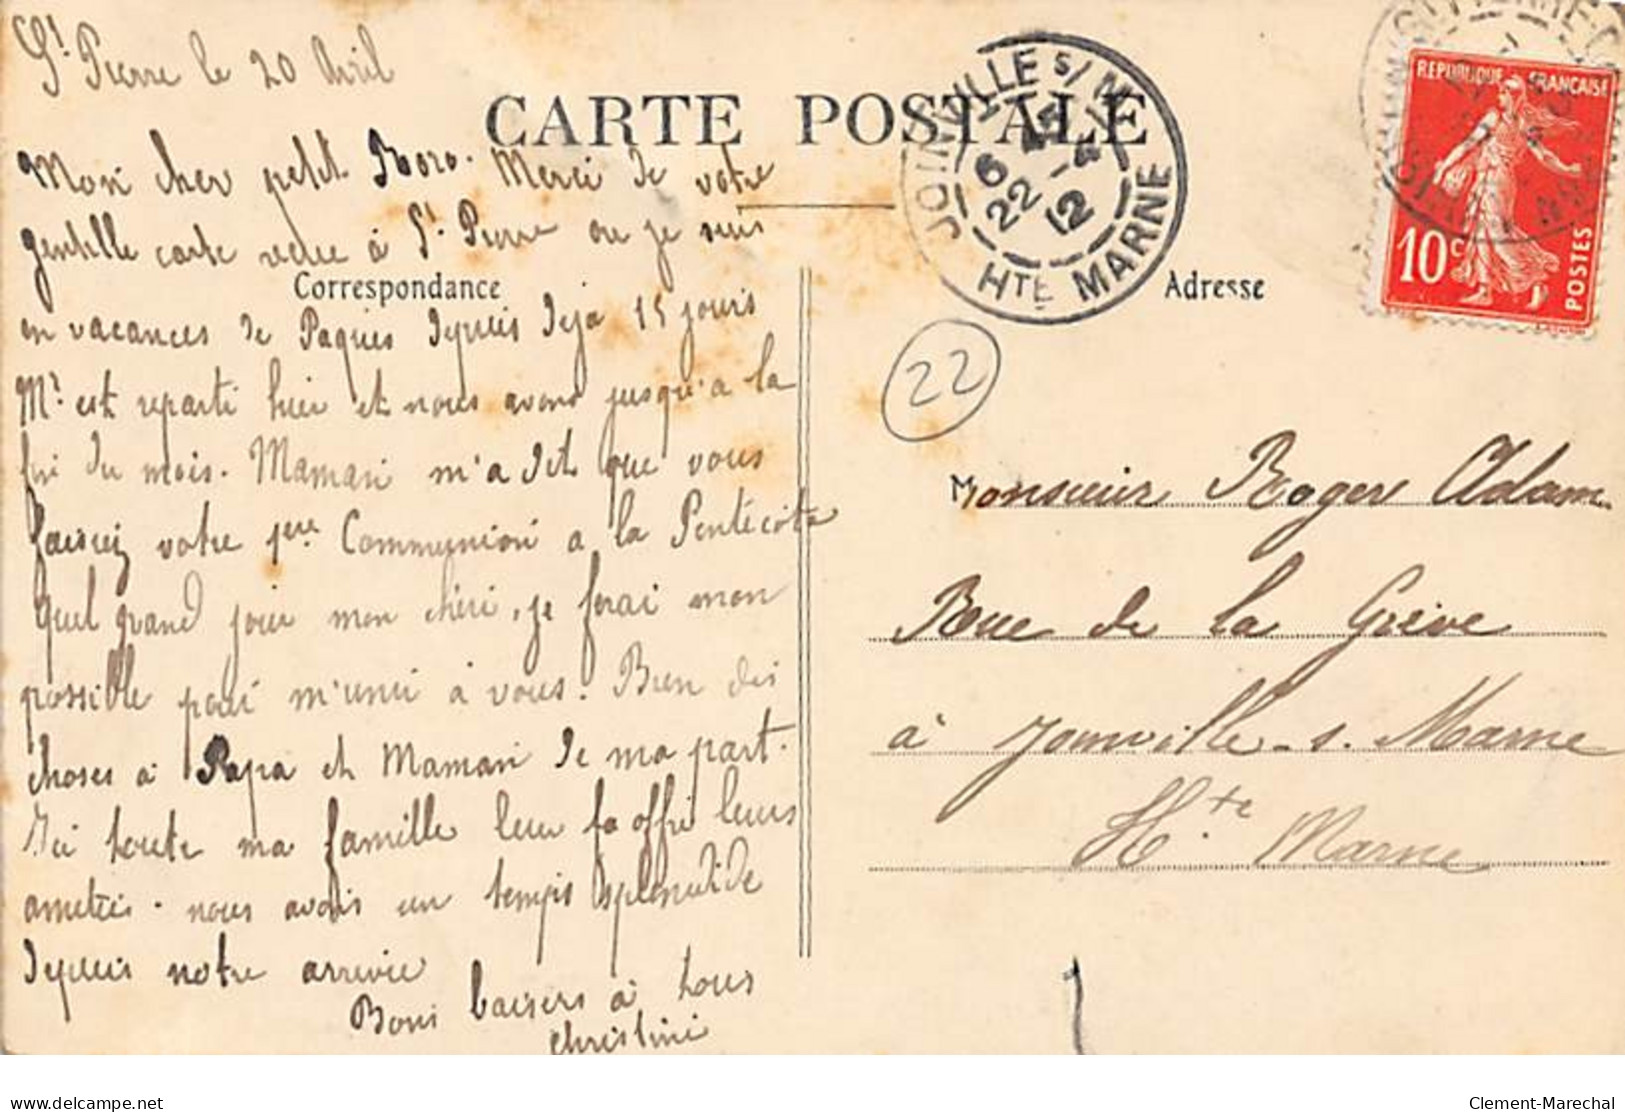 St Pierre le 20 Avril
CARTE POSTALE
Mon cher petit Roro. Merci de votre
gentille carte reçue à St Pierre ou je suis
Correspondance
en vacances de Paques depuis deja 15 jours
Mr est reparti hier et nous avons jusqu'a la
fin du mois. Maman m'a dit que vous
faisiez votre 1ère Communion a la Pentecote
quel grand jour mon chéri, je ferai mon
possible pour m'unir à vous. Bien des
choses a Papa et Maman de ma part.
Ici toute ma famille leur offre leurs
amitiés. nous avons un temps splendide
depuis notre arrivée
Bons baisers à tous
Christine
JOINVILLE S/ MNE
6 45
22 -4
12
HTE MARNE
REPUBLIQUE FRANÇAISE
10c
POSTES
Adresse
22
Monsieur Roger Adam
Rue de la Grève
à Joinville-s. Marne
Hte Marne
delcampe.net
Clement-Marechal